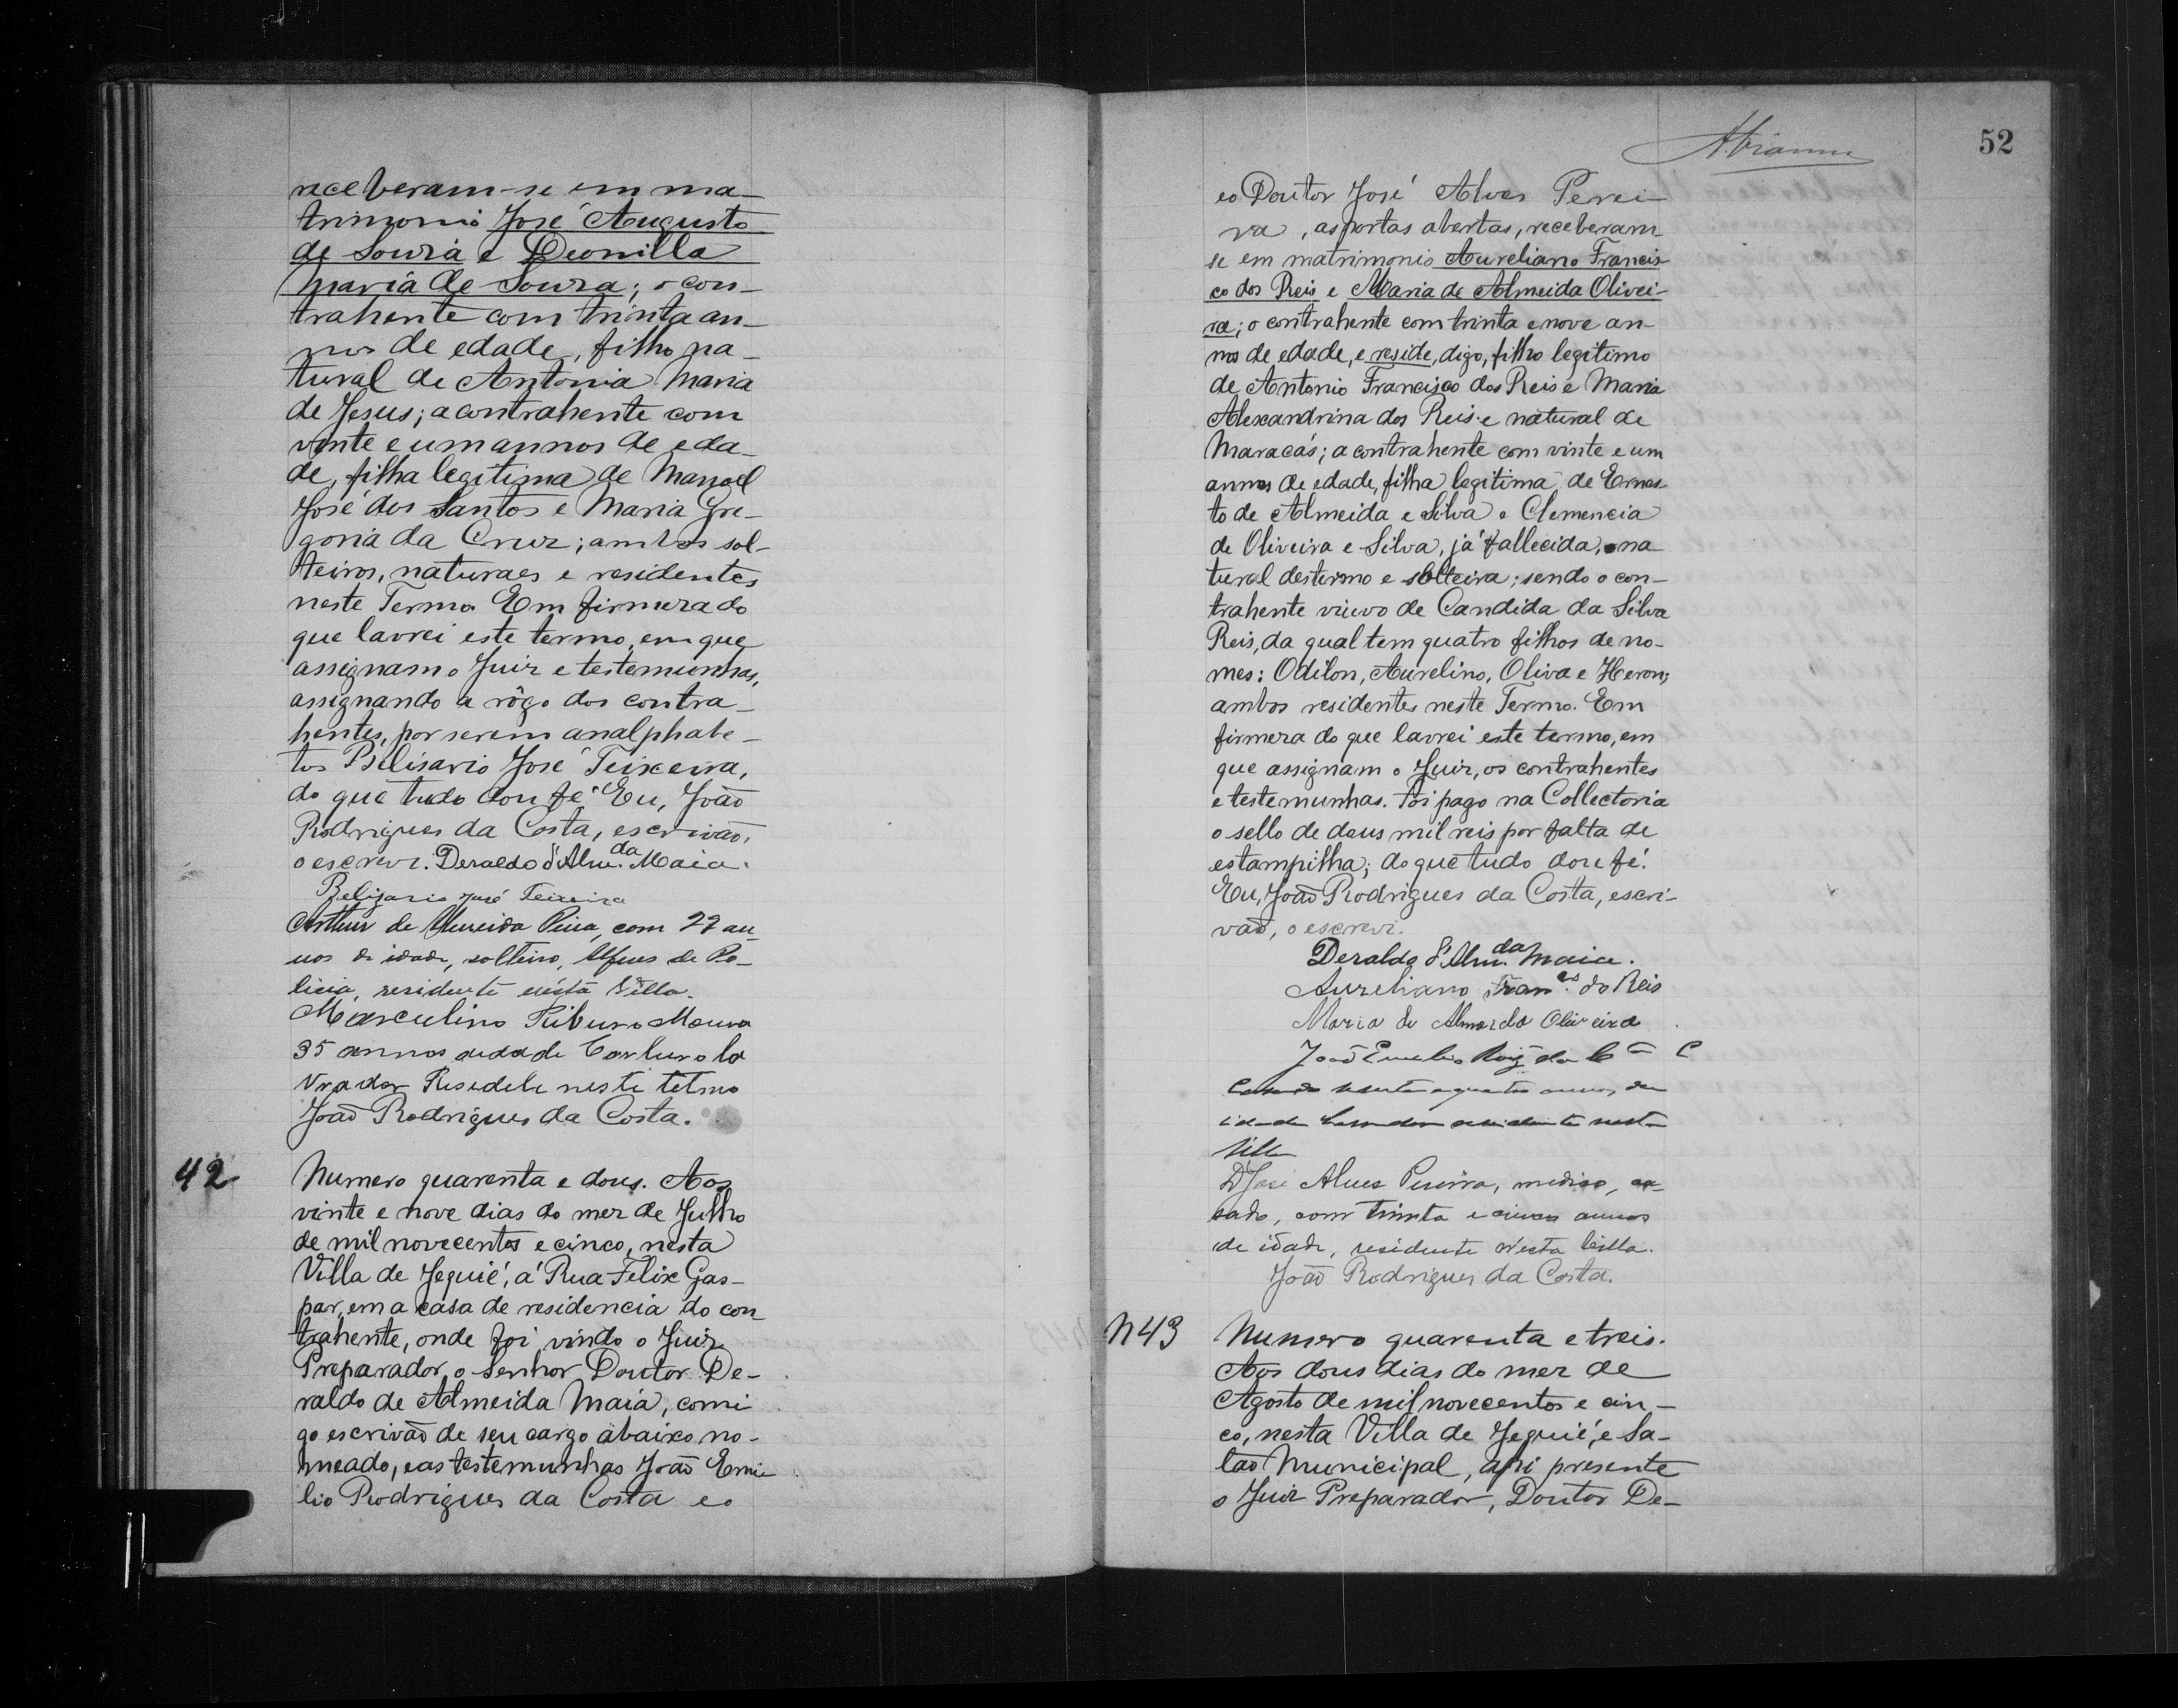 receberam-se em ma-
trimonio José Augusto
de Souza e Deonilla
Maria de Souza; o con-
trahente com trinta an-
nos de edade, filho na-
tural de Antonia Maria
de Jesus; a contrahente com
vinte e um annos de eda-
de, filha legitima de Manoel
José dos Santos e Maria Gre-
goria da Cruz; ambos sol-
teiros, naturaes e residentes
neste Termo. Em firmeza do
que lavrei este termo, em que
assignam o Juiz e testemunhas,
assignando a rôgo dos contra-
hentes, por serem analphabe-
tos Belisario José Teixeira,
do que tudo dou fé. Eu, João
Rodrigues da Costa, escrivão,
o escrevi. Deraldo d'Alm.da Maia.
Belizario José Teixeira
Arthur de Almeida Pina, com 27 an-
nos de idade, solteiro, Alferes de Po-
licia, residente nésta Villa.
Marculino Moura
35 annos
vrador neste
João Rodrigues da Costa.
42
Numero quarenta e dous. Aos
vinte e nove dias do mez de Julho
de mil novecentos e cinco, nesta
Villa de Jequié, á Rua Felix Gas-
par, em a casa de residencia do con-
trahente, onde foi vindo o Juiz
Preparador, o Senhor Doutor De-
raldo de Almeida Maia, comi-
go escrivão de seu cargo abaixo no-
meado, e as testemunhas João Emi-
lio Rodrigues da Costa e o
52
eo Doutor José Alves Perei-
ra, as portas abertas, receberam-
se em matrimonio Aureliano Francis-
co dos Reis e Maria de Almeida Olivei-
ra; o contrahente com trinta e nove an-
nos de edade, e reside, digo, filho legitimo
de Antonio Francisco dos Reis e Maria
Alexandrina dos Reis e natural de
Maracás; a contrahente com vinte e um
annos de edade, filha legitima de Ernes-
to de Almeida e Silva e Clemencia
de Oliveira e Silva, já fallecida, na-
tural destermo e solteira; sendo o con-
trahente viuvo de Candida da Silva
Reis, da qual tem quatro filhos de no-
mes: Odilon, Aurelino, Oliva e Heron;
ambos residentes neste Termo. Em
firmeza do que lavrei este termo, em
que assignam o Juiz, os contrahentes
e testemunhas. Foi pago na Collectoria
o sello de dous mil reis por falta de
estampilha; do que tudo dou fé.
Eu, João Rodrigues da Costa, escri-
vão, o escrevi.
Deraldo d'Alm.da Maia.
Aureliano Fran.co do Reis
Maria de Almeida Oliveira
João Emilio Roiz da
quatro annos de
idade residente nesta
Villa
Dr José Alves Pereira, medico, ca-
sado, com trinta e cinco annos
de idade, residente n'esta Villa.
João Rodrigues da Costa.
N43
Numero quarenta e treis.
Aos dous dias do mez de
Agosto de mil novecentos e cin-
co, nesta Villa de Jequié, e Sa-
lão Municipal, ahi presente
o Juiz Preparador, Doutor De-